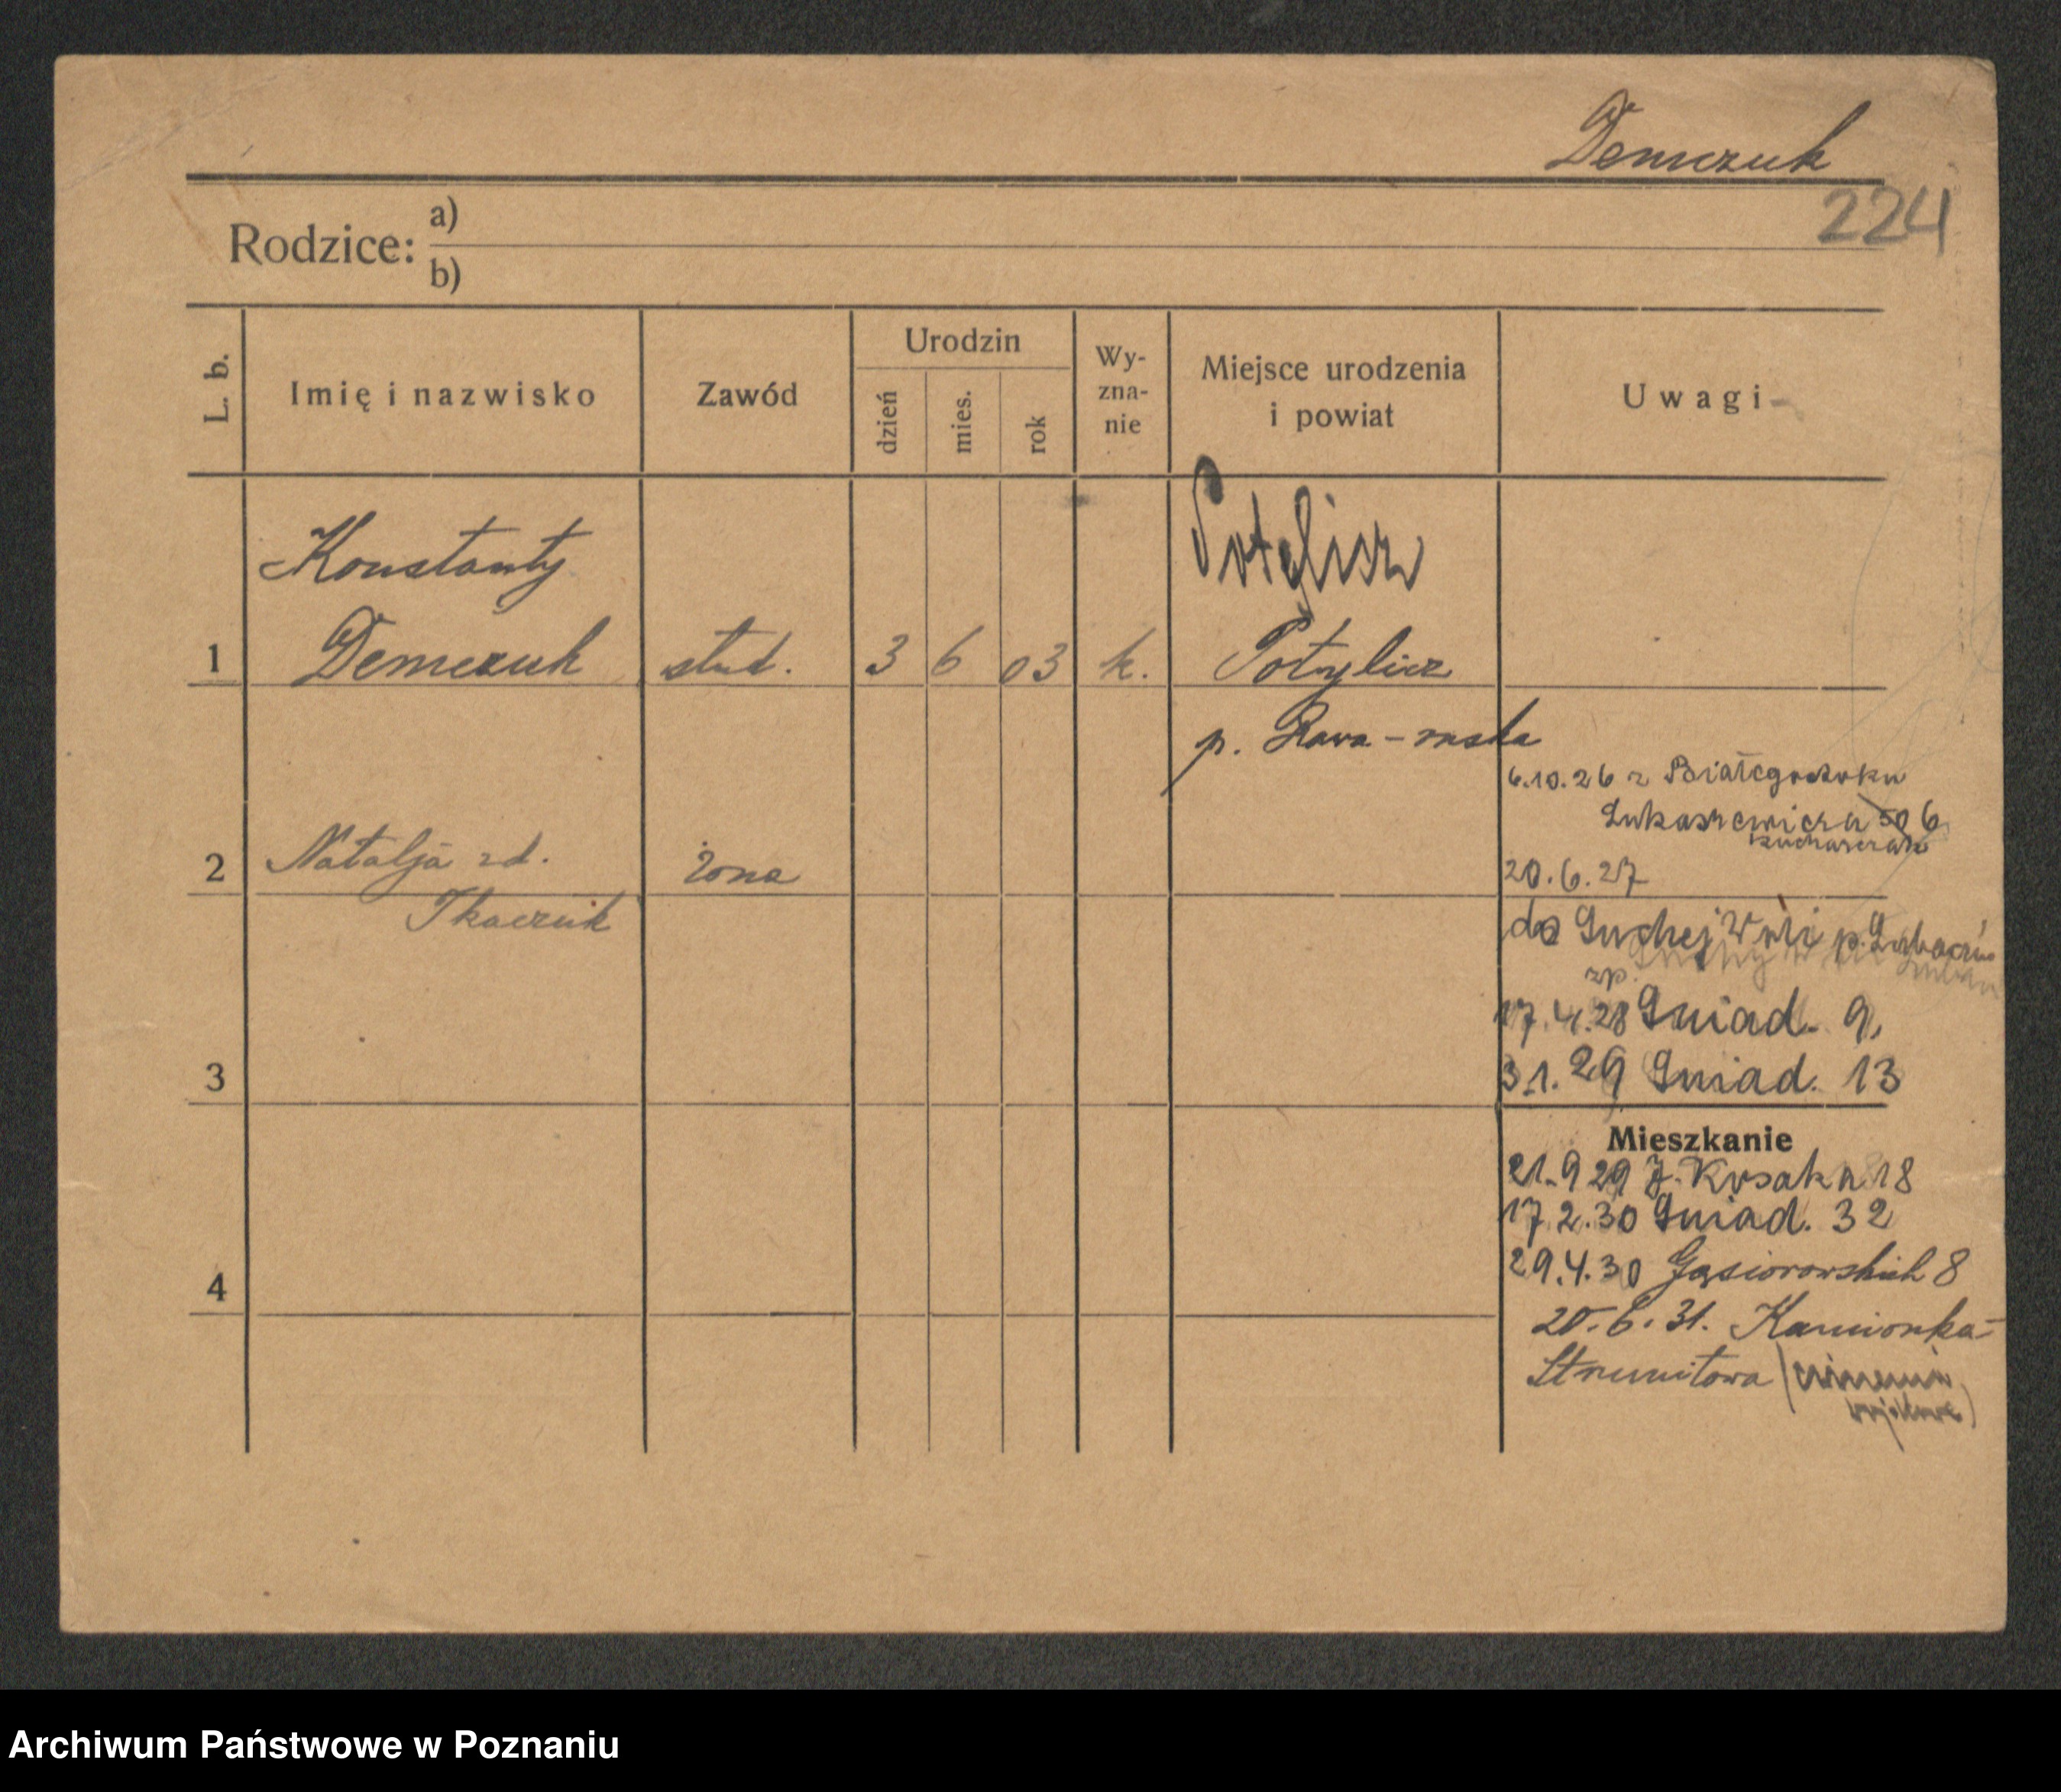 Demczuk
224
Rodzice: a)
b)
L. b. Imię i nazwisko Zawód Urodzin dzień mies. rok Wy-zna-nie Miejsce urodzenia i powiat Uwagi
Potylicz
Konstanty
1 Demczuk stud. 3 6 03 k. Potylicz
p. Rawa-ruska
6.10.26 z Białegostoku
Łukaszewicza 50 6
Kucharczak
2 Natalja zd. żona 20.6.27
Tkaczuk
do Suchej Woli p. Lubaczów
zp.
17.4.28 Śniad. 9,
3 3.1.29 Śniad. 13
Mieszkanie
21.9 29 J. Kosaka 18
17.2.30 Śniad. 32
4 29.4.30 Gąsiorowskich 8
20.6.31. Kamionka-
Strumiłowa
Archiwum Państwowe w Poznaniu